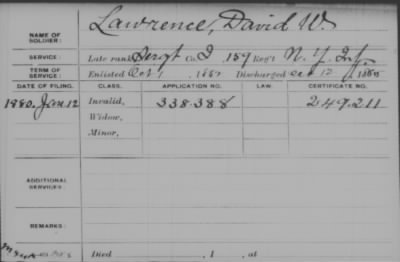 NAME OF SOLDIER: Lawrence, David W.
SERVICE: Late rank Sergt Co. I, 157 Reg't N. Y. Inf
TERM OF SERVICE: Enlisted Oct 1, 186 Discharged 12, 186
DATE OF FILING. CLASS. APPLICATION NO. LAW. CERTIFICATE NO.
1880, Jan. 12 Invalid, 338.388 249.211
Widow,
Minor,
ADDITIONAL SERVICES:
REMARKS:
Died , 1 , at